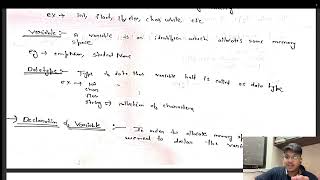 ex → int, float, char, while etc
Variable :- a variable is an identifier which allocates some memory
space
eg → emp Name, student Name
Datatype :- Type of data that variable hold is called as data type
ex → int
char
float
string → collection of characters
→ Declaration of Variable :- In order to allocate memory
we need to declare the